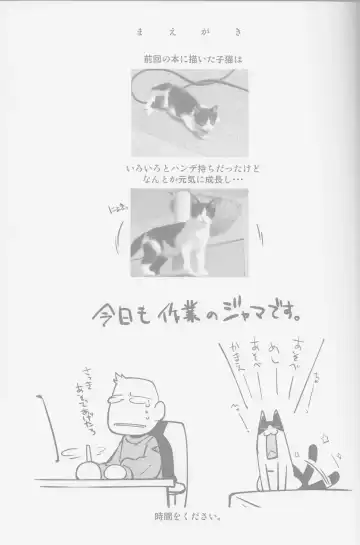 まえがき
前回の本に描いた子猫は
いろいろとハンデ持ちだったけど
なんとか元気に成長し…
今日も作業のジャマです。
あそべ
めし
あそべ
かまえ
さっき
あそんであげたろ
時間をください。